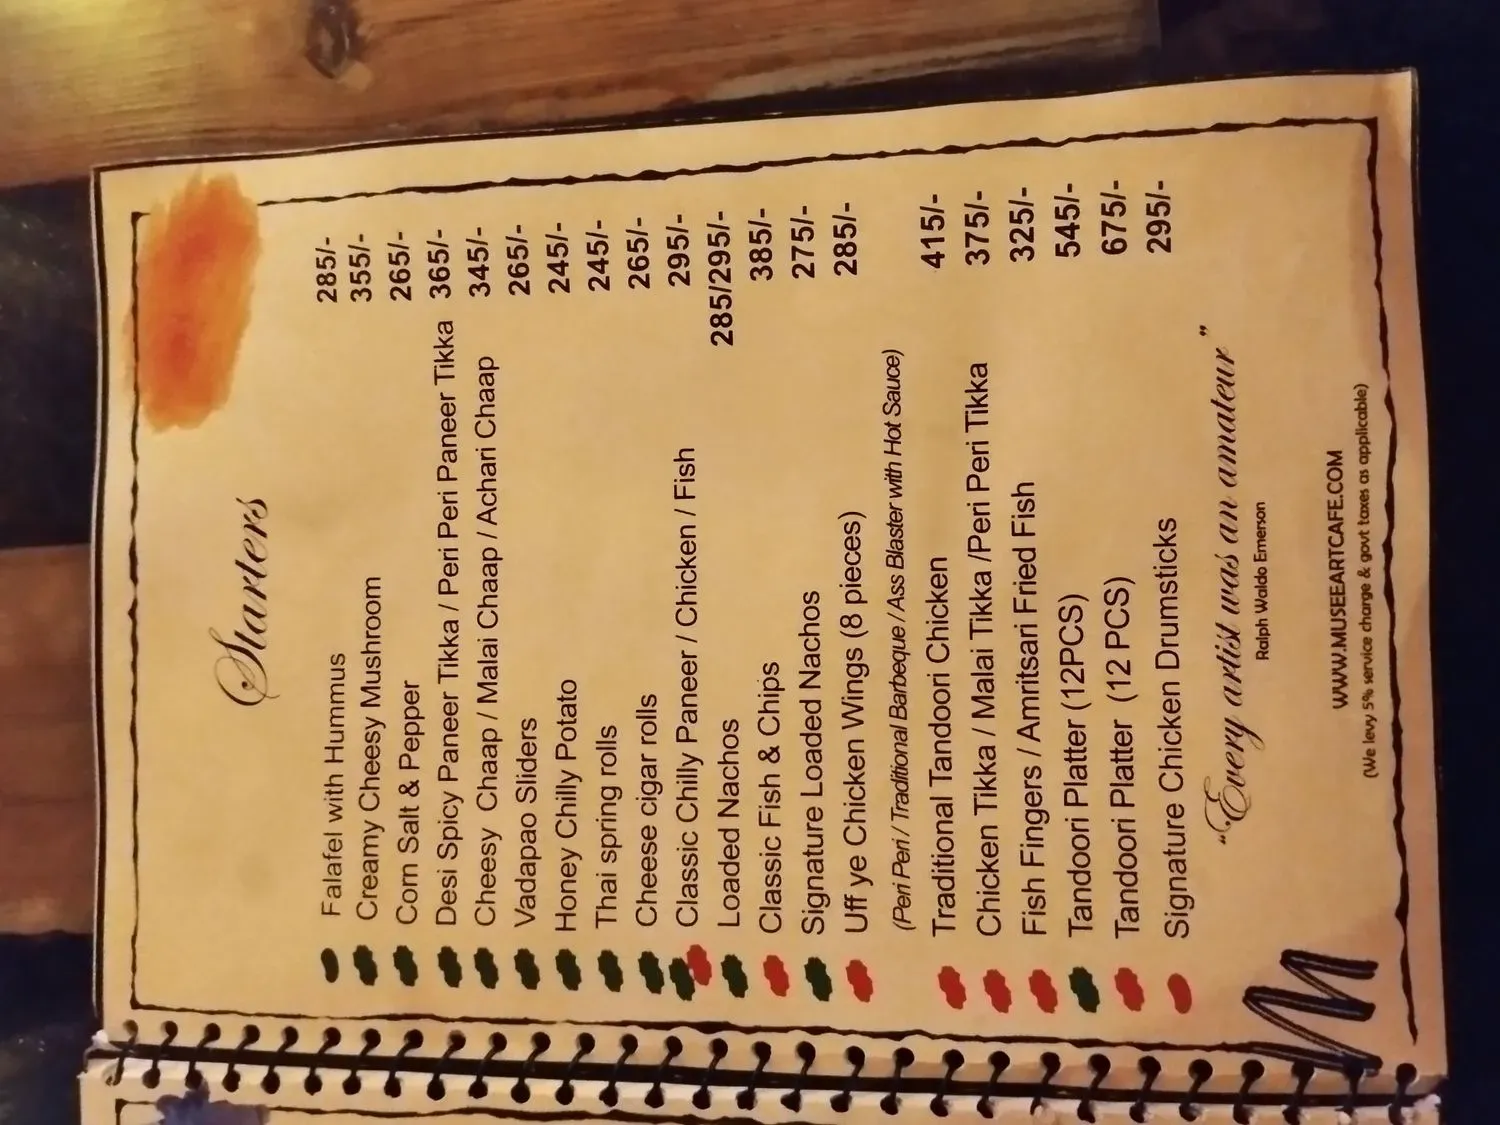 Starters
Falafel with Hummus 285/-
Creamy Cheesy Mushroom 355/-
Corn Salt & Pepper 265/-
Desi Spicy Paneer Tikka / Peri Peri Paneer Tikka 365/-
Cheesy Chaap / Malai Chaap / Achari Chaap 345/-
Vadapao Sliders 265/-
Honey Chilly Potato 245/-
Thai spring rolls 245/-
Cheese cigar rolls 265/-
Classic Chilly Paneer / Chicken / Fish 295/-
Loaded Nachos 285/295/-
Classic Fish & Chips 385/-
Signature Loaded Nachos 275/-
Uff ye Chicken Wings (8 pieces) 285/-
(Peri Peri / Traditional Barbeque / Ass Blaster with Hot Sauce)
Traditional Tandoori Chicken 415/-
Chicken Tikka / Malai Tikka /Peri Peri Tikka 375/-
Fish Fingers / Amritsari Fried Fish 325/-
Tandoori Platter (12PCS) 545/-
Tandoori Platter (12 PCS) 675/-
Signature Chicken Drumsticks 295/-
"Every artist was an amateur"
Ralph Waldo Emerson
M
WWW.MUSEEARTCAFE.COM
(We levy 5% service charge & govt taxes as applicable)